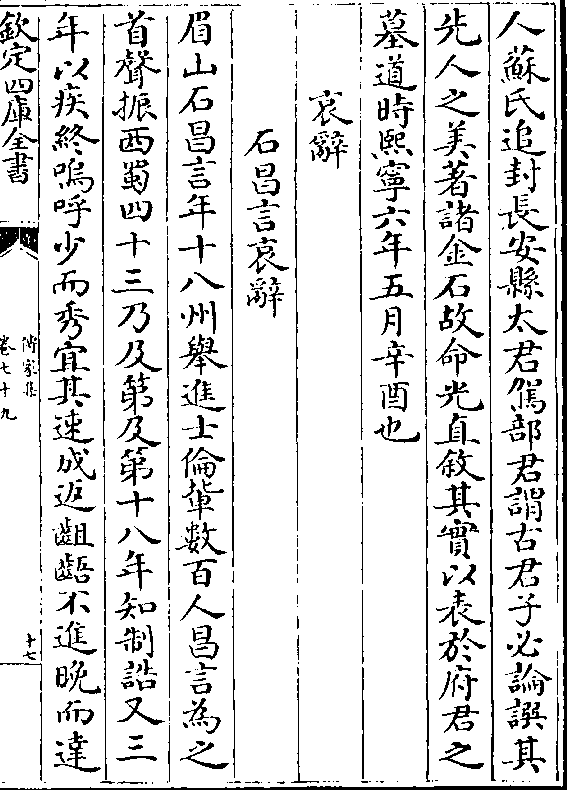 人蘇氏追封長安縣太君駕部君謂古君子必論譔其
先人之美著諸金石故命光直敘其實以表於府君之
墓道時熙寧六年五月辛酉也
哀辭
石昌言哀辭
眉山石昌言年十八州舉進士倫軰數百人昌言為之
首聲振西蜀四十三乃及第及第十八年知制誥又三
年以疾終嗚呼少而秀宜其速成返齟齬不進晚而達
欽定四庫全書
傳家集
卷七十九
十七